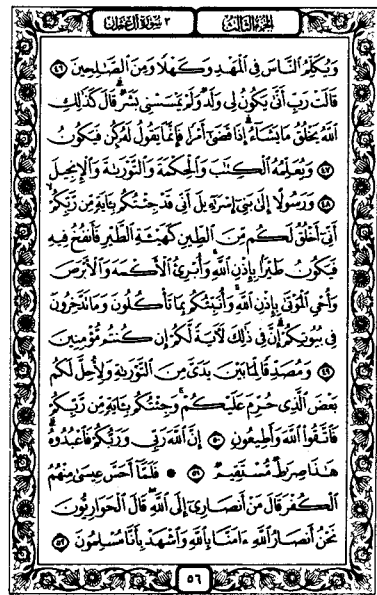 الجزء الثالث
٣ سورة آل عمران
وَيُكَلِّمُ النَّاسَ فِي الْمَهْدِ وَكَهْلًا وَمِنَ الصَّالِحِينَ ٤٦
قَالَتْ رَبِّ أَنَّى يَكُونُ لِي وَلَدٌ وَلَمْ يَمْسَسْنِي بَشَرٌ قَالَ كَذَلِكِ
اللَّهُ يَخْلُقُ مَا يَشَاءُ إِذَا قَضَى أَمْرًا فَإِنَّمَا يَقُولُ لَهُ كُن فَيَكُونُ
٤٧ وَيُعَلِّمُهُ الْكِتَابَ وَالْحِكْمَةَ وَالتَّوْرَاةَ وَالْإِنجِيلَ
٤٨ وَرَسُولًا إِلَى بَنِي إِسْرَائِيلَ أَنِّي قَدْ جِئْتُكُم بِآيَةٍ مِّن رَّبِّكُمْ
أَنِّي أَخْلُقُ لَكُم مِّنَ الطِّينِ كَهَيْئَةِ الطَّيْرِ فَأَنفُخُ فِيهِ
فَيَكُونُ طَيْرًا بِإِذْنِ اللَّهِ وَأُبْرِئُ الْأَكْمَهَ وَالْأَبْرَصَ
وَأُحْيِ الْمَوْتَى بِإِذْنِ اللَّهِ وَأُنَبِّئُكُم بِمَا تَأْكُلُونَ وَمَا تَدَّخِرُونَ
فِي بُيُوتِكُمْ إِنَّ فِي ذَلِكَ لَآيَةً لَّكُمْ إِن كُنتُم مُّؤْمِنِينَ
٤٩ وَمُصَدِّقًا لِّمَا بَيْنَ يَدَيَّ مِنَ التَّوْرَاةِ وَلِأُحِلَّ لَكُم
بَعْضَ الَّذِي حُرِّمَ عَلَيْكُمْ وَجِئْتُكُم بِآيَةٍ مِّن رَّبِّكُمْ
فَاتَّقُوا اللَّهَ وَأَطِيعُونِ ٥٠ إِنَّ اللَّهَ رَبِّي وَرَبُّكُمْ فَاعْبُدُوهُ
هَذَا صِرَاطٌ مُّسْتَقِيمٌ ٥١ فَلَمَّا أَحَسَّ عِيسَى مِنْهُمُ
الْكُفْرَ قَالَ مَنْ أَنصَارِي إِلَى اللَّهِ قَالَ الْحَوَارِيُّونَ
نَحْنُ أَنصَارُ اللَّهِ ءَامَنَّا بِاللَّهِ وَاشْهَدْ بِأَنَّا مُسْلِمُونَ ٥٢
٥٦